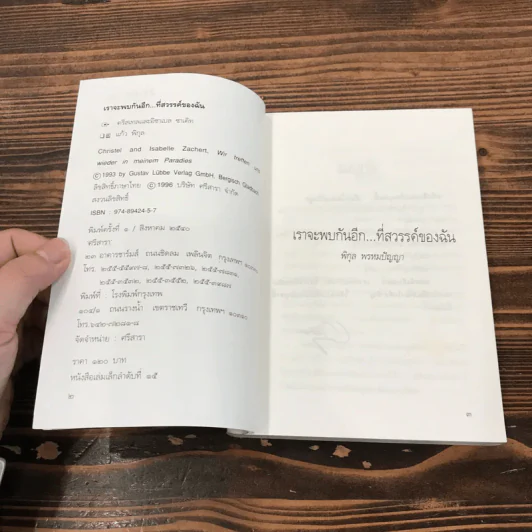 เราจะพบกันอีก...ที่สวรรค์ของฉัน
คริสเทลและอิซาเบล ซาเคิท
แก้ว พิกุล
Christel and Isabelle Zachert, Wir treffen uns
wieder in meinem Paradies
©1993 by Gustav Lübbe Verlag GmbH, Bergisch Gladbach
ลิขสิทธิ์ภาษาไทย ©1996 บริษัท ศรีสารา จำกัด
สงวนลิขสิทธิ์
ISBN : 974-89424-5-7
พิมพ์ครั้งที่ ๑ / สิงหาคม ๒๕๔๐
ศรีสารา
๒๓ อาคารชาร์มส์ ถนนชิดลม เพลินจิต กรุงเทพฯ
โทร.
พิมพ์ที่ โรงพิมพ์กรุงเทพ
ถนนรางน้ำ เขตราชเทวี กรุงเทพฯ
โทร.
จัดจำหน่าย : ศรีสารา
ราคา ๑๒๐ บาท
หนังสือเล่มเล็กลำดับที่ ๑๕
๒
เราจะพบกันอีก...ที่สวรรค์ของฉัน
พิกุล พรหมปัญญา
๓